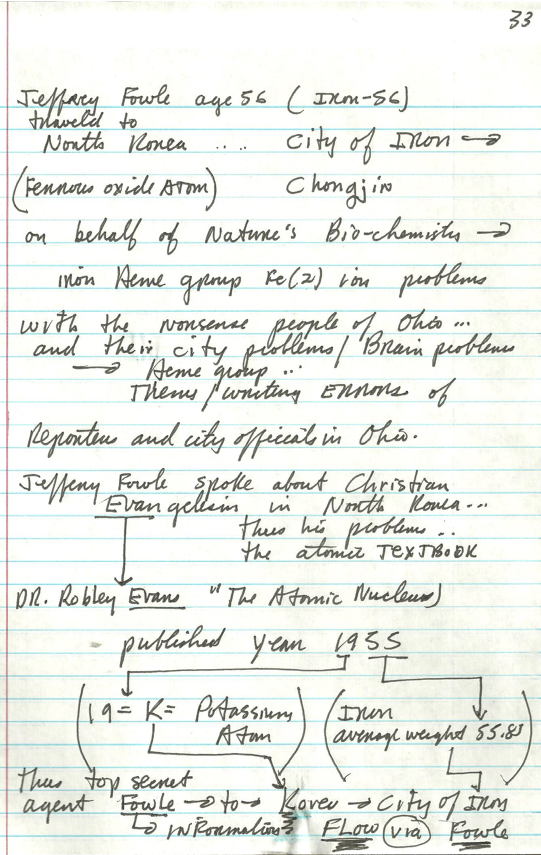 33
Jeffrey Fowle age 56 (Iron-56)
traveled to
North Korea .... City of Iron →
(Ferrous oxide Atom) Chongjin
on behalf of Nature's Bio-chemists →
iron Heme group Fe(2) ion problems
with the nonsense people of Ohio ...
and their city problems / Brain problems
→ Heme group ...
Thems / writing ERRORS of
Reporters and city officials in Ohio.
Jeffery Fowle spoke about Christian
Evangelesim in North Korea...
thus his problems ..
the atomic TEXTBOOK
DR. Robley Evans "The Atomic Nucleus)
published year 1955
(19 = K = Potassium Atom) (Iron average weight 55.85)
thus top secret
agent Fowle → to → Korea → City of Iron
↳ information FLOW via Fowle